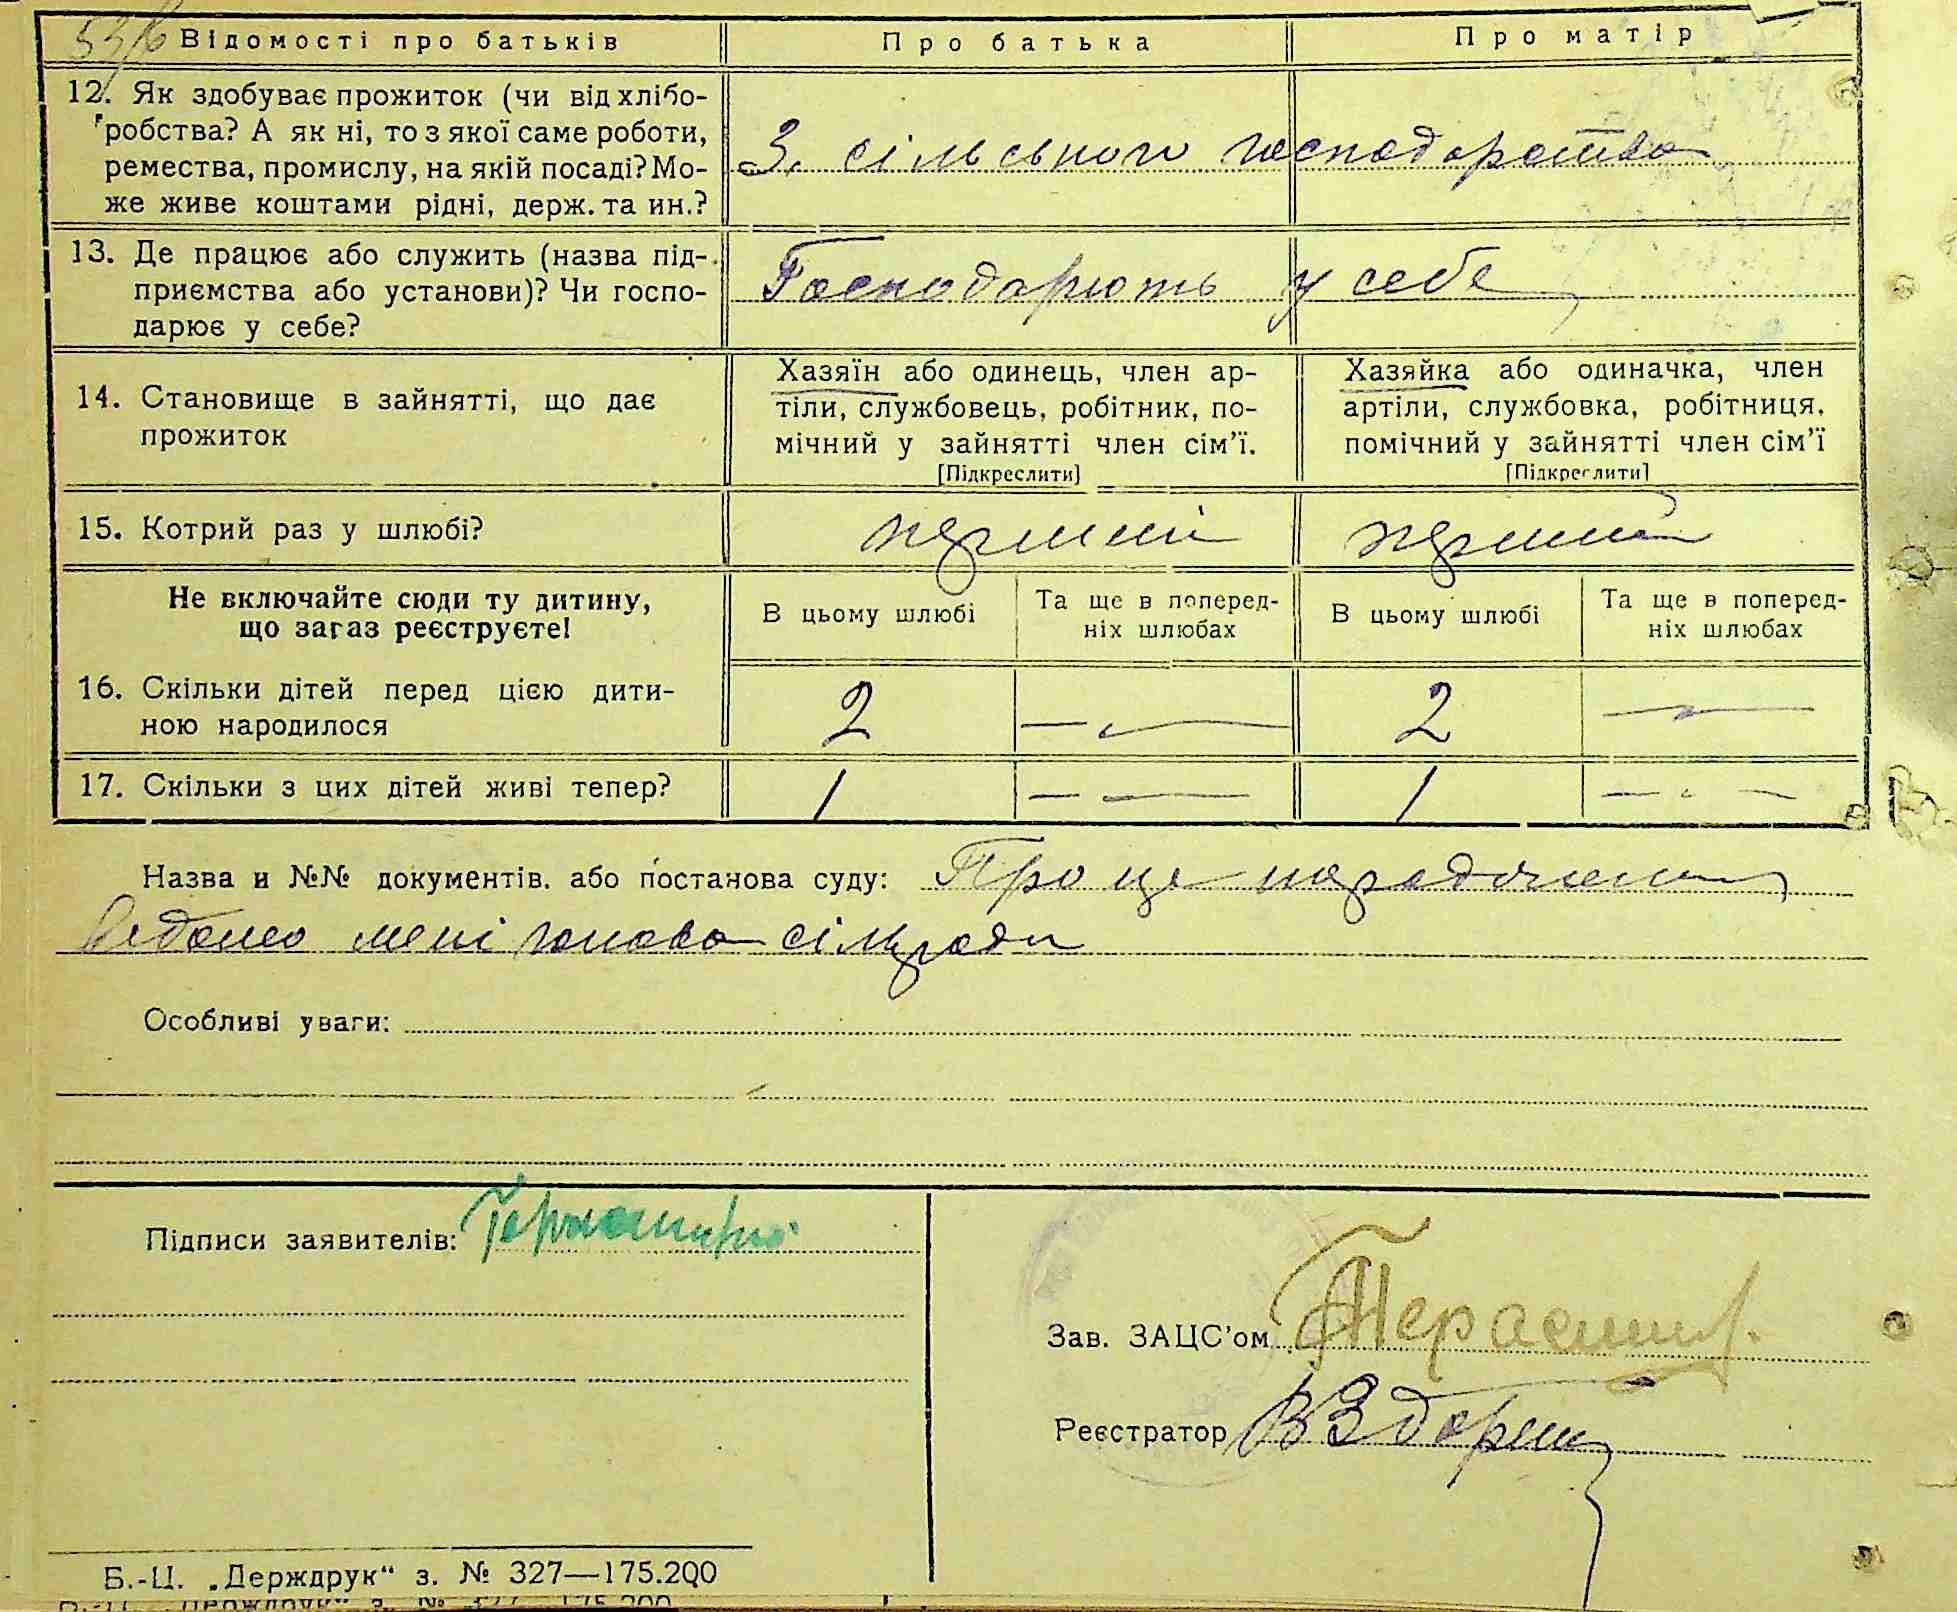 Відомості про батьків
Про батька
Про матір
12. Як здобуває прожиток (чи від хлібо-
робства? А як ні, то з якої саме роботи,
ремества, промислу, на якій посаді? Мо-
же живе коштами рідні, держ. та ин.?
З сільського господарства
13. Де працює або служить (назва під-
приємства або установи)? Чи госпо-
дарює у себе?
Господарюють у себе
14. Становище в зайнятті, що дає
прожиток
Хазяїн або одинець, член ар-
тіли, службовець, робітник, по-
мічний у зайнятті член сім'ї.
[Підкреслити]
Хазяйка або одиначка, член
артіли, службовка, робітниця,
помічний у зайнятті член сім'ї
[Підкреслити]
15. Котрий раз у шлюбі?
перший
перший
Не включайте сюди ту дитину,
що зараз реєструєте!
В цьому шлюбі
Та ще в поперед-
ніх шлюбах
В цьому шлюбі
Та ще в поперед-
ніх шлюбах
16. Скільки дітей перед цією дити-
ною народилося
2 — 2 —
17. Скільки з цих дітей живі тепер?
1 — — 1 — —
Назва и №№ документів. або постанова суду: Про це народження
відомо мені голова сільради
Особливі уваги:
Підписи заявителів:
Зав. ЗАЦС'ом
Реєстратор
Б.-Ц. „Держдрук“ з. № 327—175.200